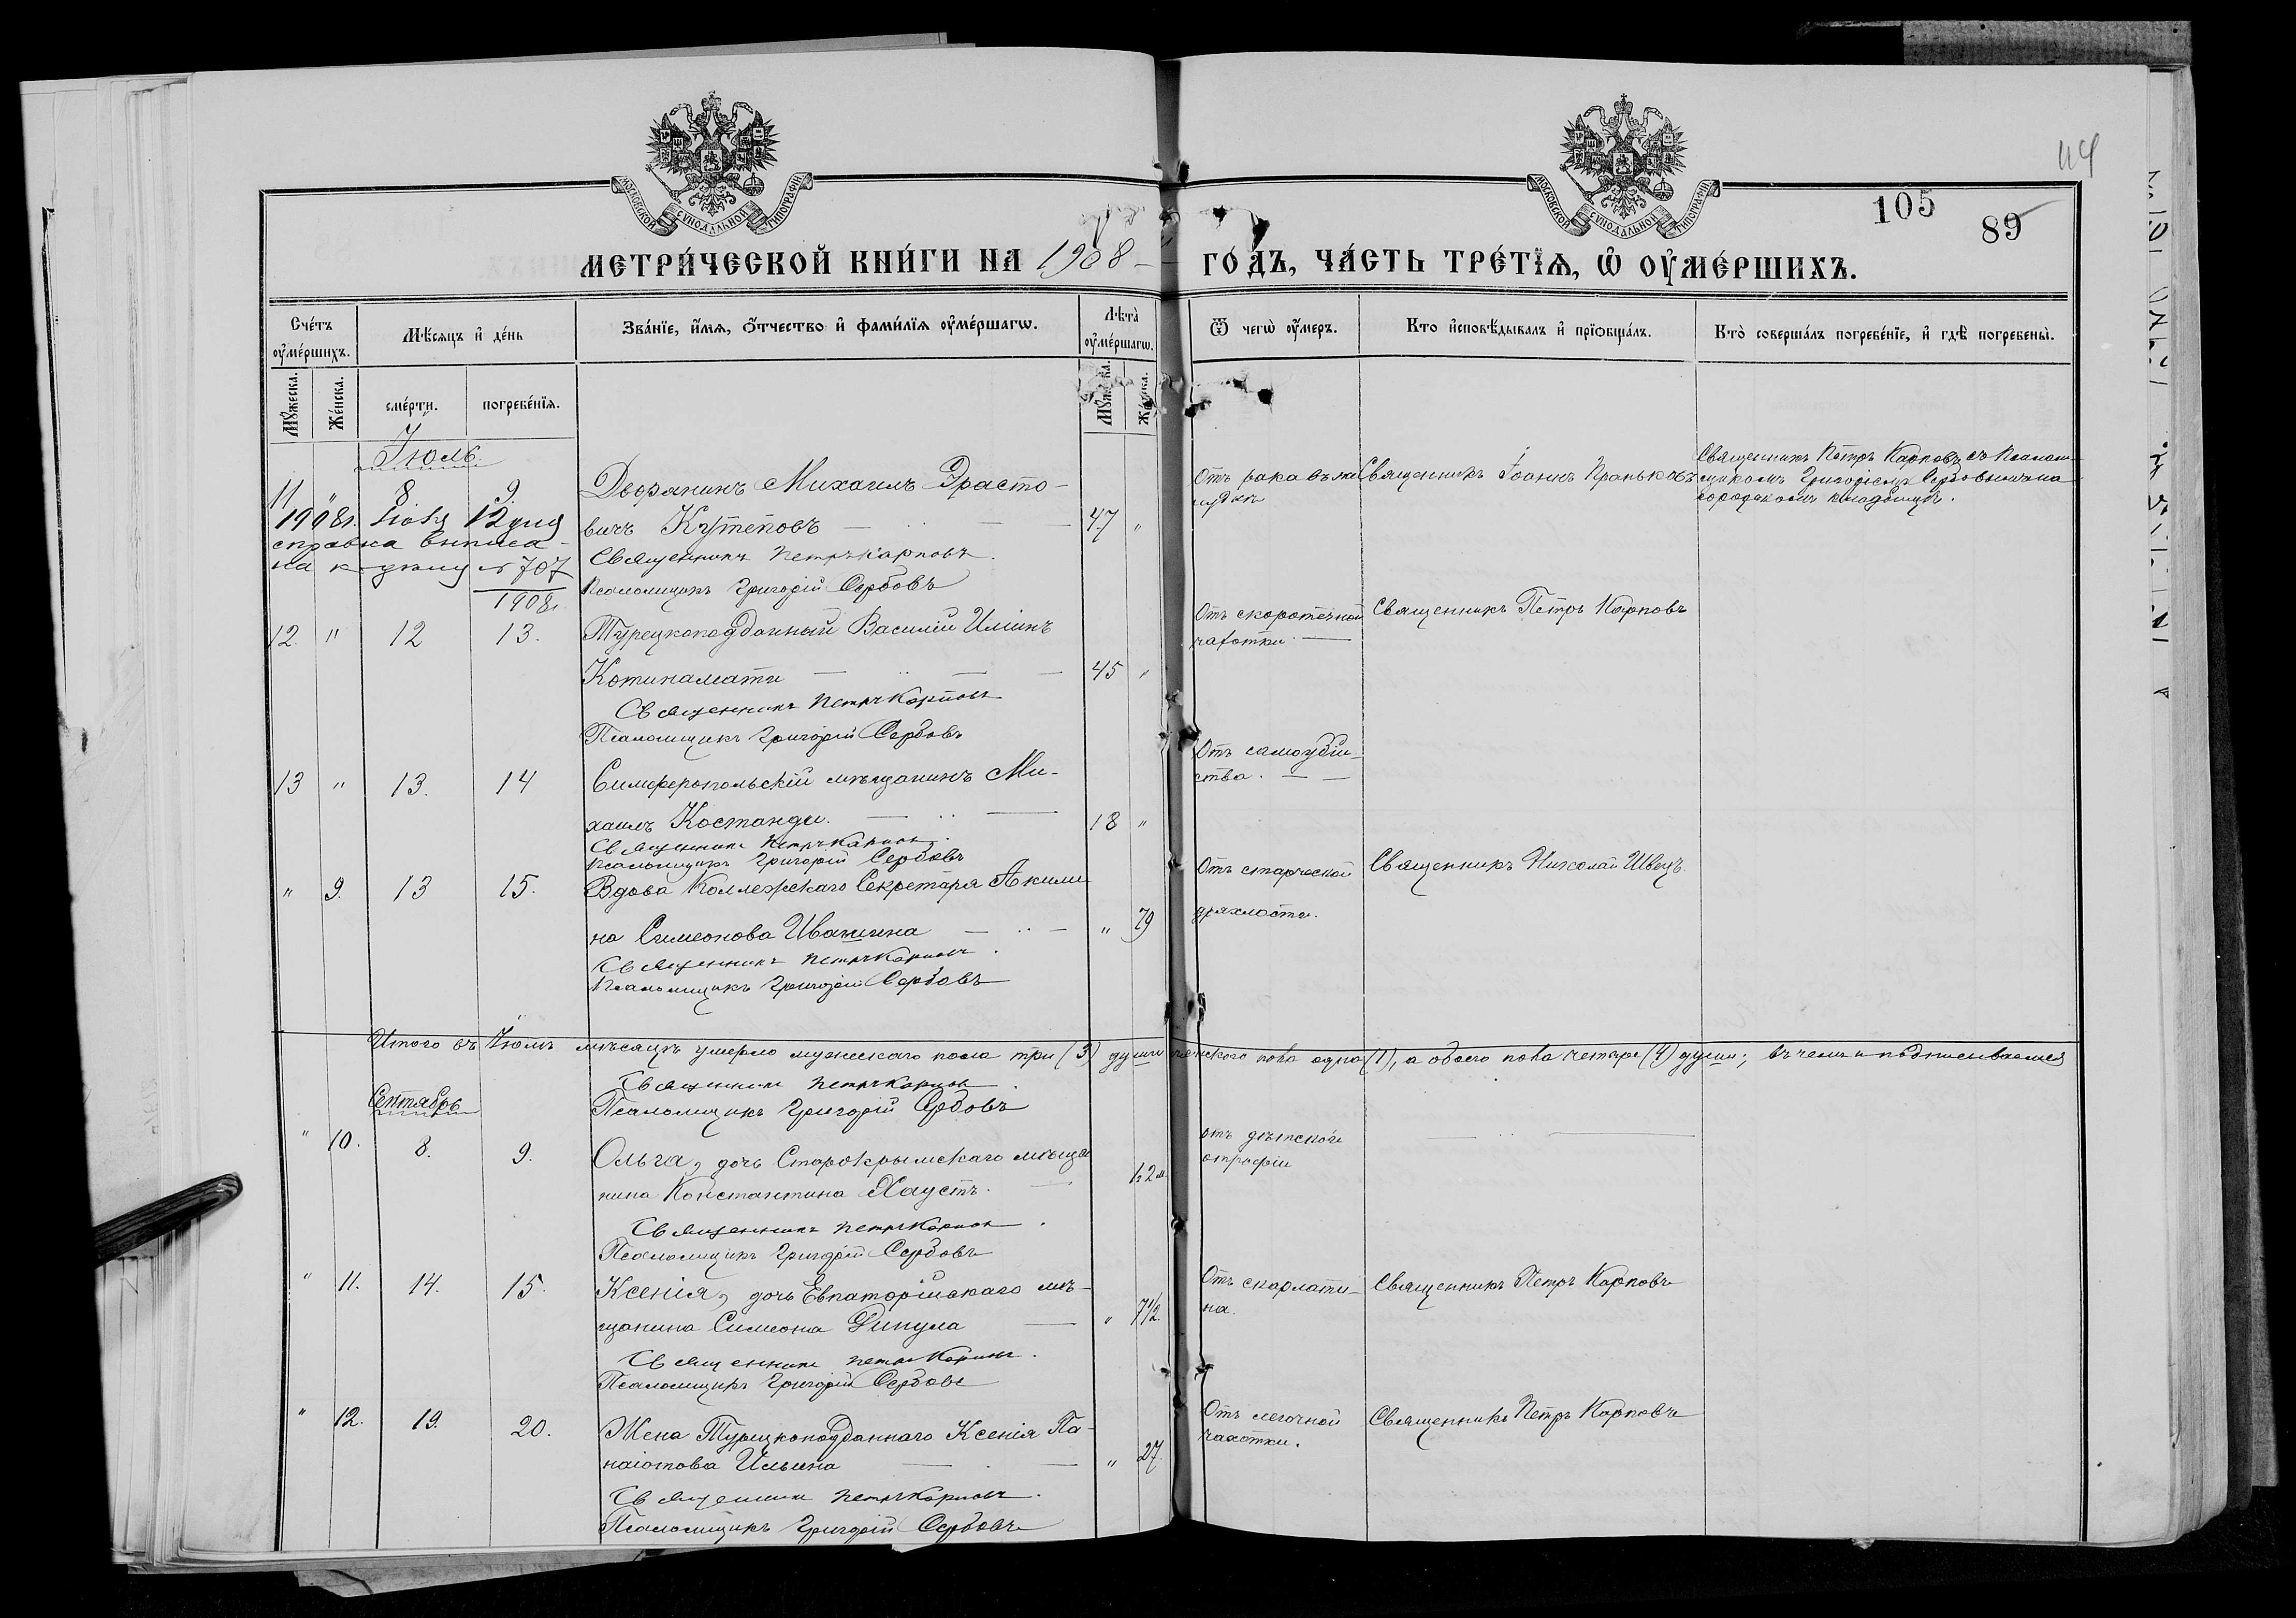 МОСКОВСКОЙ СѴНОДАЛЬНОЙ ТИПОГРАФІИ
МОСКОВСКОЙ СѴНОДАЛЬНОЙ ТИПОГРАФІИ
105
89
МЕТРИ́ЧЕСКОЙ КНИ́ГИ НА 1908 ГО́ДЪ, ЧА́СТЬ ТРЕ́ТІѦ, Ѡ҆ ОУ҆МЕ́РШИХЪ.
Сче́тъ оу҆ме́ршихъ.
Мѣ́сѧцъ и҆ де́нь
Зва́нїе, и҆́мѧ, ѻ҆́тчество и҆ фами́лїѧ оу҆ме́ршагѡ.
Лѣта̀ оу҆ме́ршагѡ.
Ѿ чегѡ̀ оу҆́меръ.
Кто и҆сповѣ́дывалъ и҆ прїѻбща́лъ.
Кто̀ соверша́лъ погребе́нїе, и҆ гдѣ̀ погребены̀.
Мꙋ́жеска.
Же́нска.
сме́рти.
погребе́нїѧ.
Мꙋ́жеска.
Же́нска.
Іюль.
11 " 8 9.
Дворянинъ Михаилъ Эрасто-
вичъ Кутеповъ 47 "
Священникъ Петръ Карповъ.
Псаломщикъ Григорій Сербовъ
1908г. 12 дня
справка выписа-
на № 707
1908г.
Отъ рака въ же-
лудкѣ
Священникъ Іоаннъ
Священникъ Петръ Карповъ съ Псалом-
щикомъ Григоріемъ Сербовымъ на
городскомъ кладбищѣ.
12. " 12 13.
Турецкоподданный Василій Илiинъ
45 "
Священникъ Петръ Карповъ
Псаломщикъ Григорій Сербовъ
Отъ скоротечной
чахотки.
Священникъ Петръ Карповъ
13 " 13. 14
Симферопольскій мѣщанинъ Ми-
хаилъ Костанди. 18 "
Священникъ Петръ Карповъ.
Псаломщикъ Григорій Сербовъ
Отъ самоубій-
ства.
" 9. 13 15.
Вдова Коллежскаго Секретаря Акили-
на Симеонова Ивашина " 79
Священникъ Петръ Карповъ.
Псаломщикъ Григорій Сербовъ
Отъ старческой
дряхлости.
Священникъ Николай Швецъ.
Итого въ Іюлѣ мѣсяцѣ умерло мужескаго пола три (3) души женскаго пола одна (1), а обоего пола четыре (4) души; въ чемъ и подписываемся
Священникъ Петръ Карповъ.
Псаломщикъ Григорій Сербовъ
Сентябрь
" 10. 8. 9.
Ольга, дочь Старокрымскаго мѣща-
нина Константина Хаустъ.
Священникъ Петръ Карповъ.
Псаломщикъ Григорій Сербовъ
отъ дѣтской
атрофіи
" 11. 14. 15.
Ксенія, дочь Евпаторійскаго мѣ-
щанина Симеона Дипула " 7 1/2.
Священникъ Петръ Карповъ.
Псаломщикъ Григорій Сербовъ
Отъ скарлати-
на.
Священникъ Петръ Карповъ
" 12. 19. 20.
Жена Турецкоподданнаго Ксенія Па-
наіотова Ильина " 27.
Священникъ Петръ Карповъ.
Псаломщикъ Григорій Сербовъ
Отъ легочной
чахотки.
Священникъ Петръ Карповъ